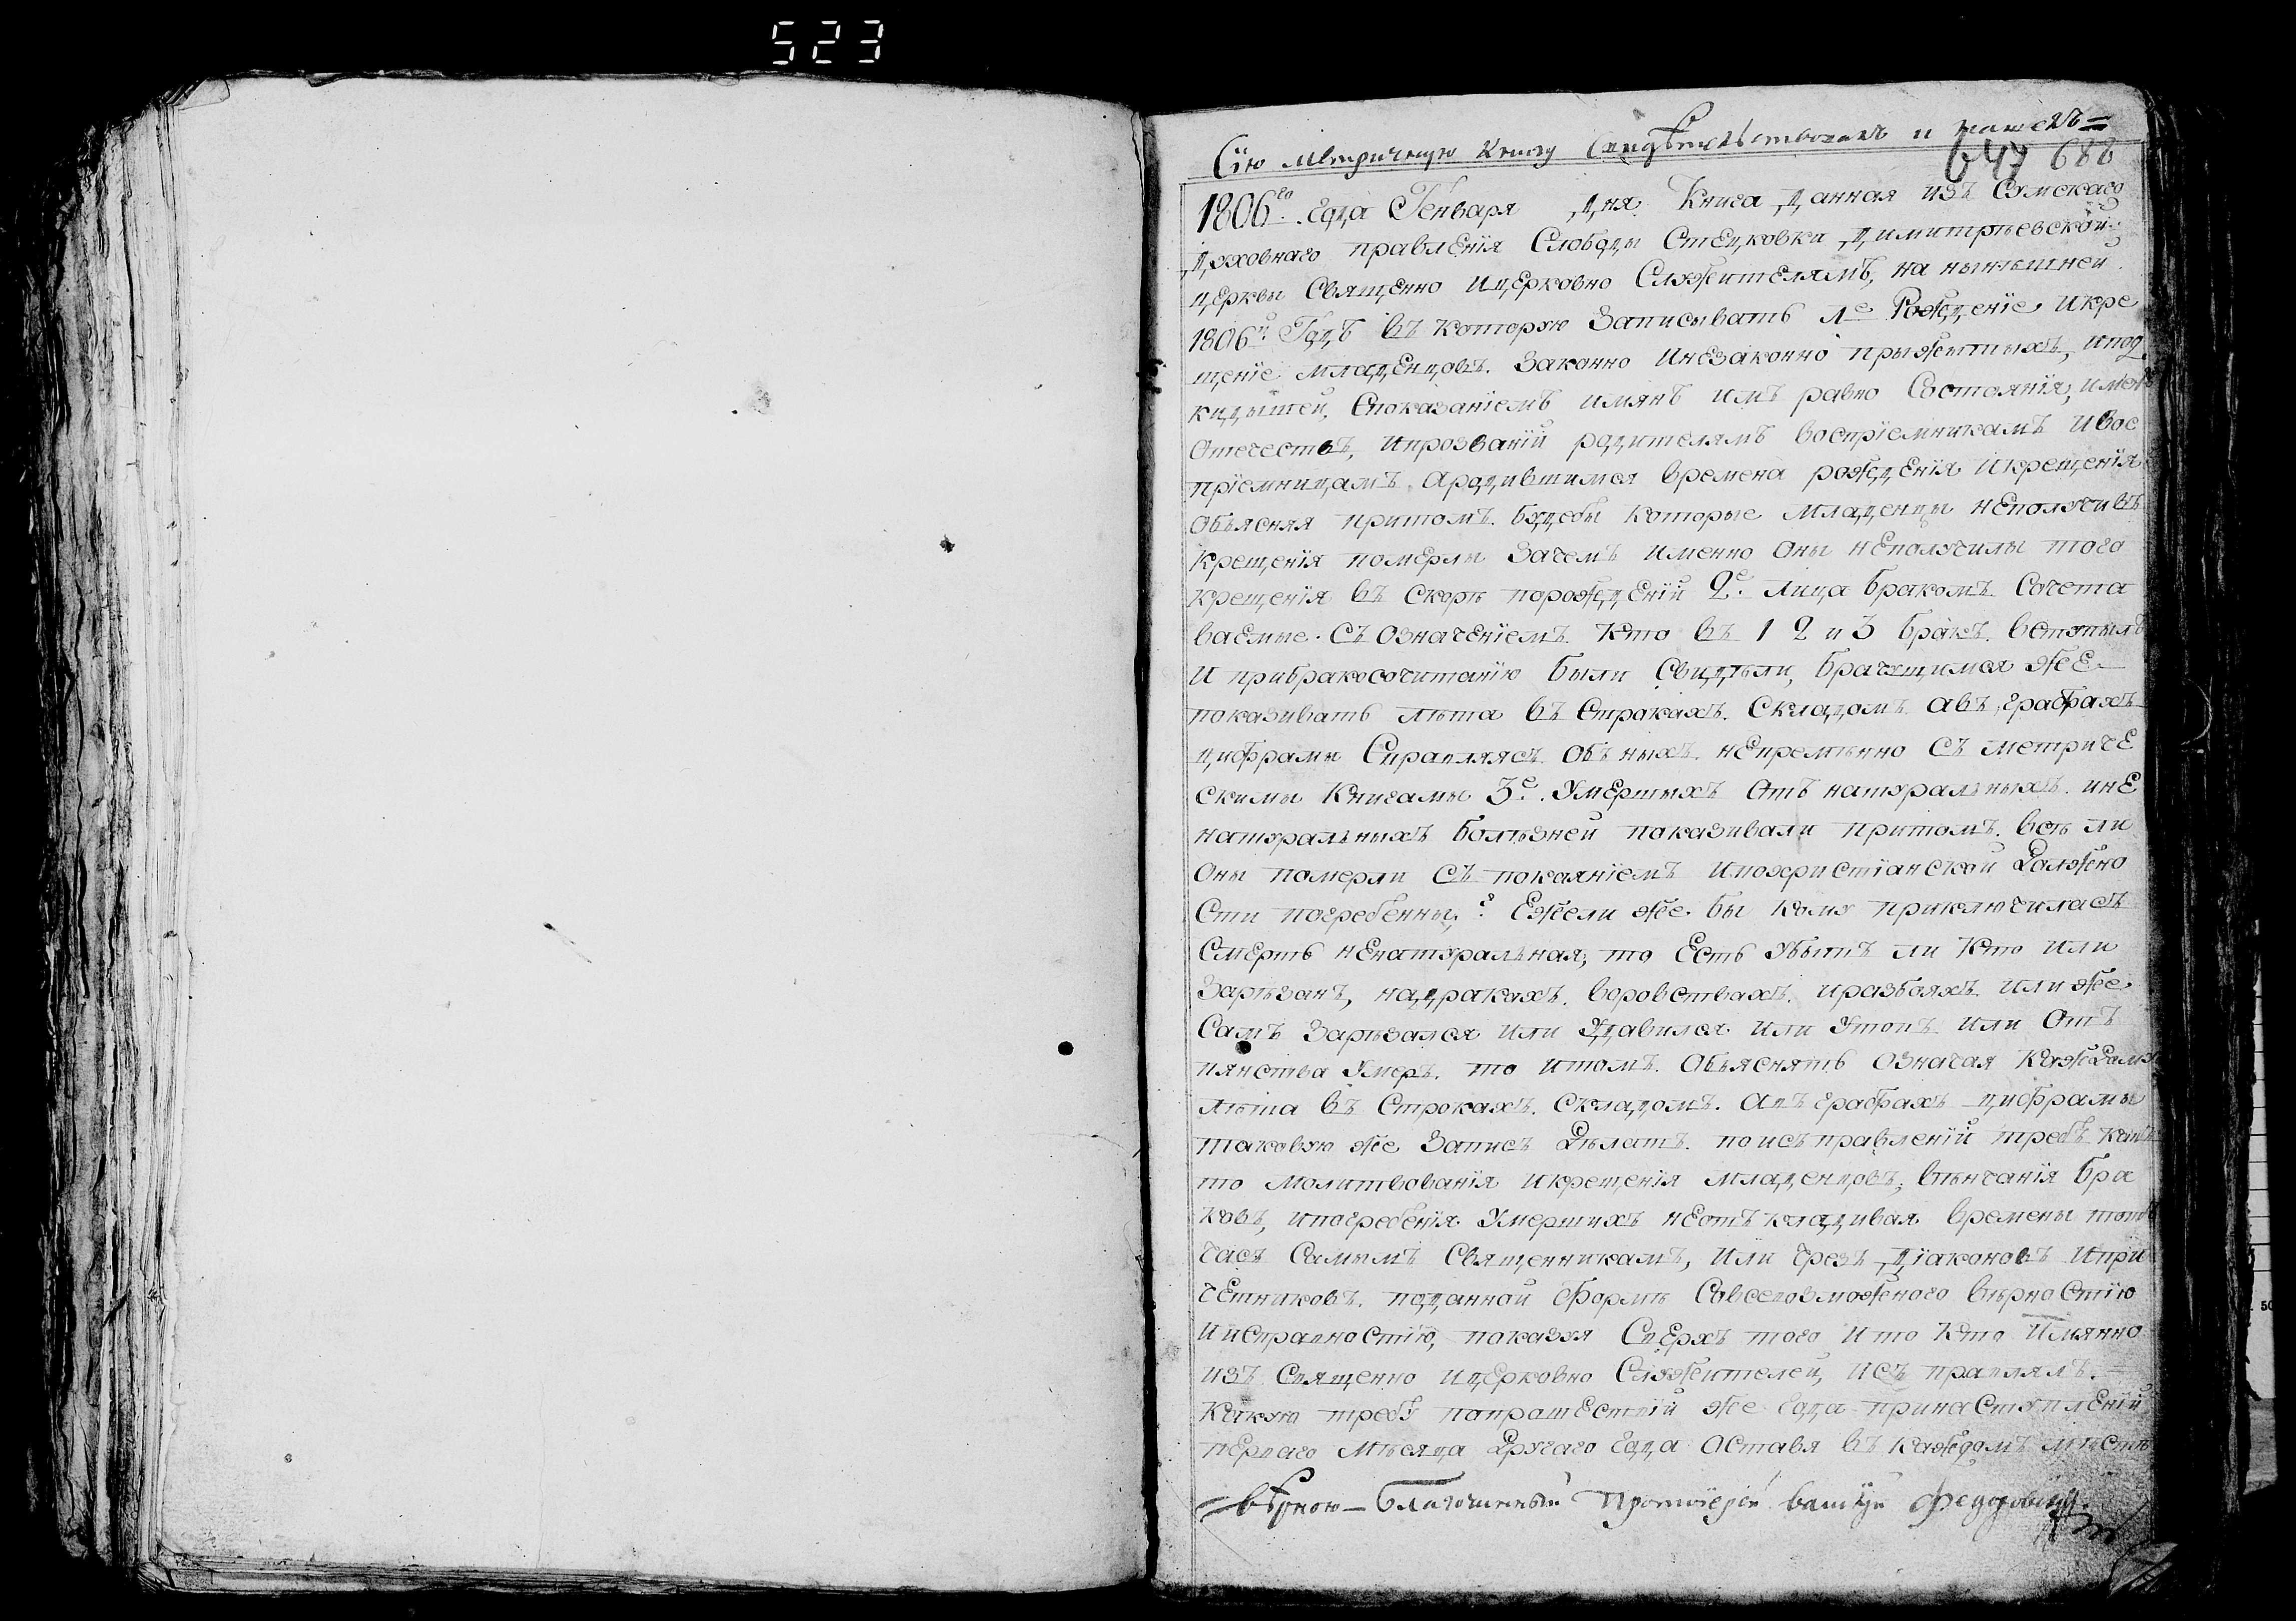 523
Сїю метрическую книгу Свидѣтельствовалъ и нашелъ =
647 688
1806го года Генваря дня Книга данная изъ Сумскаго
духовнаго правленїя Слободы Стецковки димитрьевской
церквы Священно ицерковно Служителямъ, на нынѣшней
1806й Годъ въ которую Записывать 1е Рожденїе икре
щенїе младенцовъ. Законно инезаконно прыжытыхъ, ипод
кидышей, споказанїемъ имянъ имъ равно Состоянїя, имен
Отечествъ, ипрозванїй родителямъ воспрїемникамъ ивос
прїемницамъ. Ародившимся времена рожденїя икрещенїя
Объясняя притомъ. будебы которые младенцы неполучивъ
крещенїя померлы Зачемъ именно Оны неполучилы того
крещенїя въ Скорѣ порожденїи 2е. лица бракомъ Сочета
ваемые. Съ Означенїемъ. Кто въ 1 2 и 3 бракъ. вступылъ
И прибракосочитанїю были Свидѣли, брачущимся же
показивать лѣта въ Строкахъ. Складомъ авъ графахъ
цифрамы Справляясъ Объ ныхъ. непремѣнно Съ метриче
скимы Книгамы 3е. Умершыхъ Отъ натуральныхъ. ине
натуральныхъ болѣзней показивали притомъ. всѣ ли
Оны померли Съ покаянїемъ ипохристїанской должно
Сти погребенны, ? Ежели же. бы кому приключиласъ
Смерть ненатуральная, то Есть Убытъ ли Кто или
Зарѣзанъ, надракахъ. воровствахъ. иразбояхъ. или же
Самъ Зарѣзался или Удавился или Утопъ или Отъ
пянства Умеръ. то итомъ. Объяснять Означая Каждаму
лѣта въ Строкахъ. Складомъ. авъ графахъ цифрамы
таковую же Записъ дѣлатъ. поисъправленїи требъ как
то молитвованїя икрещенїя младенцовъ, вѣнчанїя бра
ковъ, ипогребенїя. Умершихъ неотъкладивая времены тотъ
часъ Самымъ Священникамъ, или чрезъ дїаконовъ ипри
четниковъ. поданной формѣ Совсевозможного вѣрностїю
И исправностїю, показуя Сверхъ того и то Кто Имянно
изъ Священно ицерковно Служителей, исъ правлялъ.
Какую требу попрошествїи же года принаступленїи
перваго мѣсяца другаго года Оставя въ каждомъ мѣстѣ
= вѣрною – Благочинный Протоїерей Василїй Федоровскїй